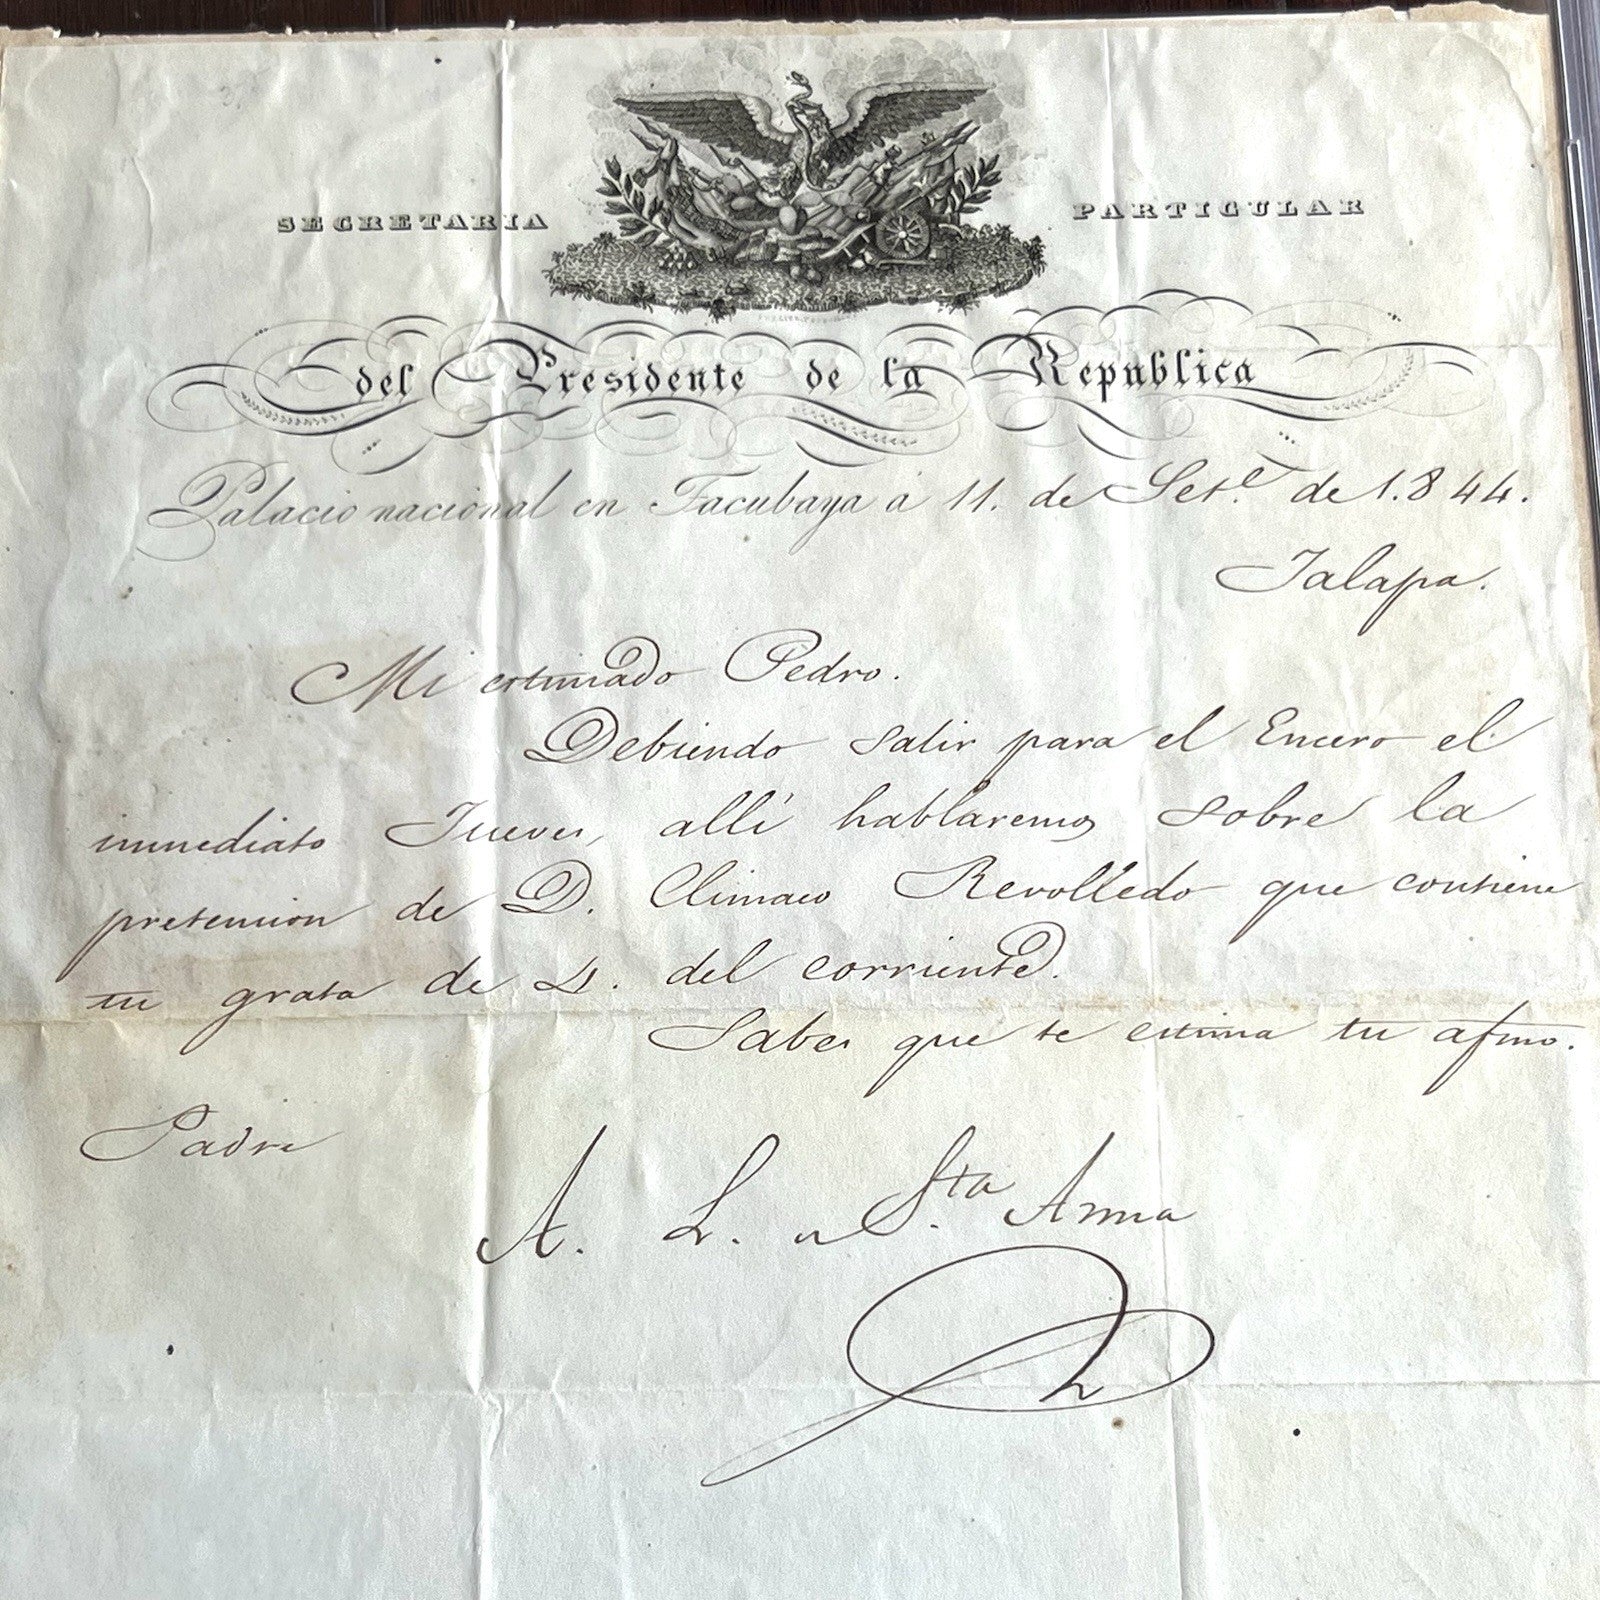 SECRETARIA PARTICULAR
del Presidente de la Republica
Palacio nacional en Tacubaya á 11. de Set.e de 1.844.
Jalapa.
Mi estimado Pedro.
Debiendo salir para el Encero el
inmediato Jueves, allí hablaremos sobre la
pretencion de D. Climaco Revolledo que contiene
tu grata de 4. del corriente.
Sabes que te estima tu afmo.
Padre
A. L. de S.ta Anna